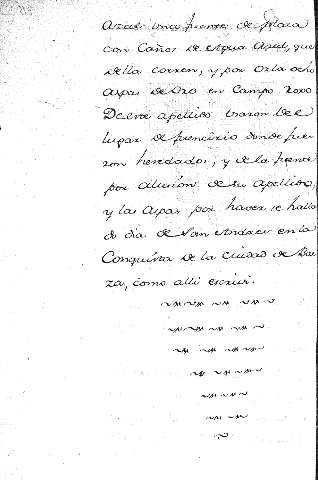 Azul: una fuente de plata
con Caños de Agua Azul, que
della corren, y por Orla ocho
Aspas de Oro en Campo roxo
De este apellido usaron de el
lugar de frencirio donde fue
ron heredados, y de la fuente
por alusion de su Apellido,
y las Aspas por haver se halla
do dia de San Andres en la
Conquista de la Ciudad de Bae
za, como alli escrivi.